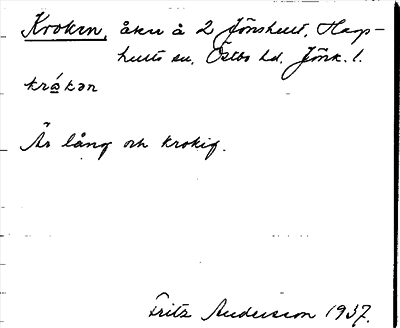 Kroken, åker å 2 Jönshult, Hag-
hults sn, Östbo hd. Jönk. l.
krókən
Är lång och krokig.
Fritz Andersson 1937.